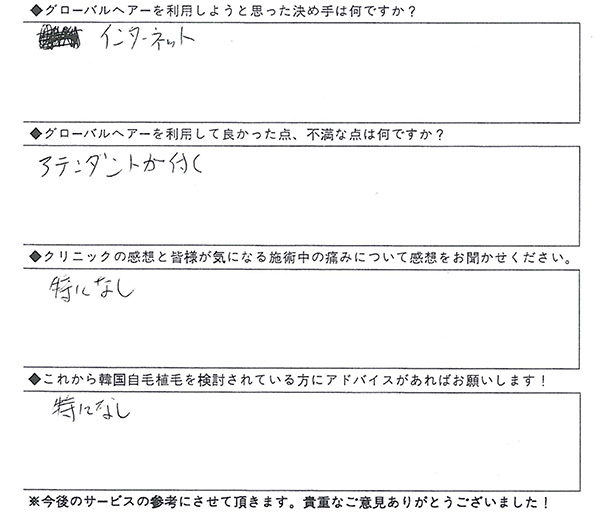 ◆グローバルヘアーを利用しようと思った決め手は何ですか？
インターネット
◆グローバルヘアーを利用して良かった点、不満な点は何ですか？
アテンダントが付く
◆クリニックの感想と皆様が気になる施術中の痛みについて感想をお聞かせください。
特になし
◆これから韓国自毛植毛を検討されている方にアドバイスがあればお願いします！
特になし
※今後のサービスの参考にさせて頂きます。貴重なご意見ありがとうございました！